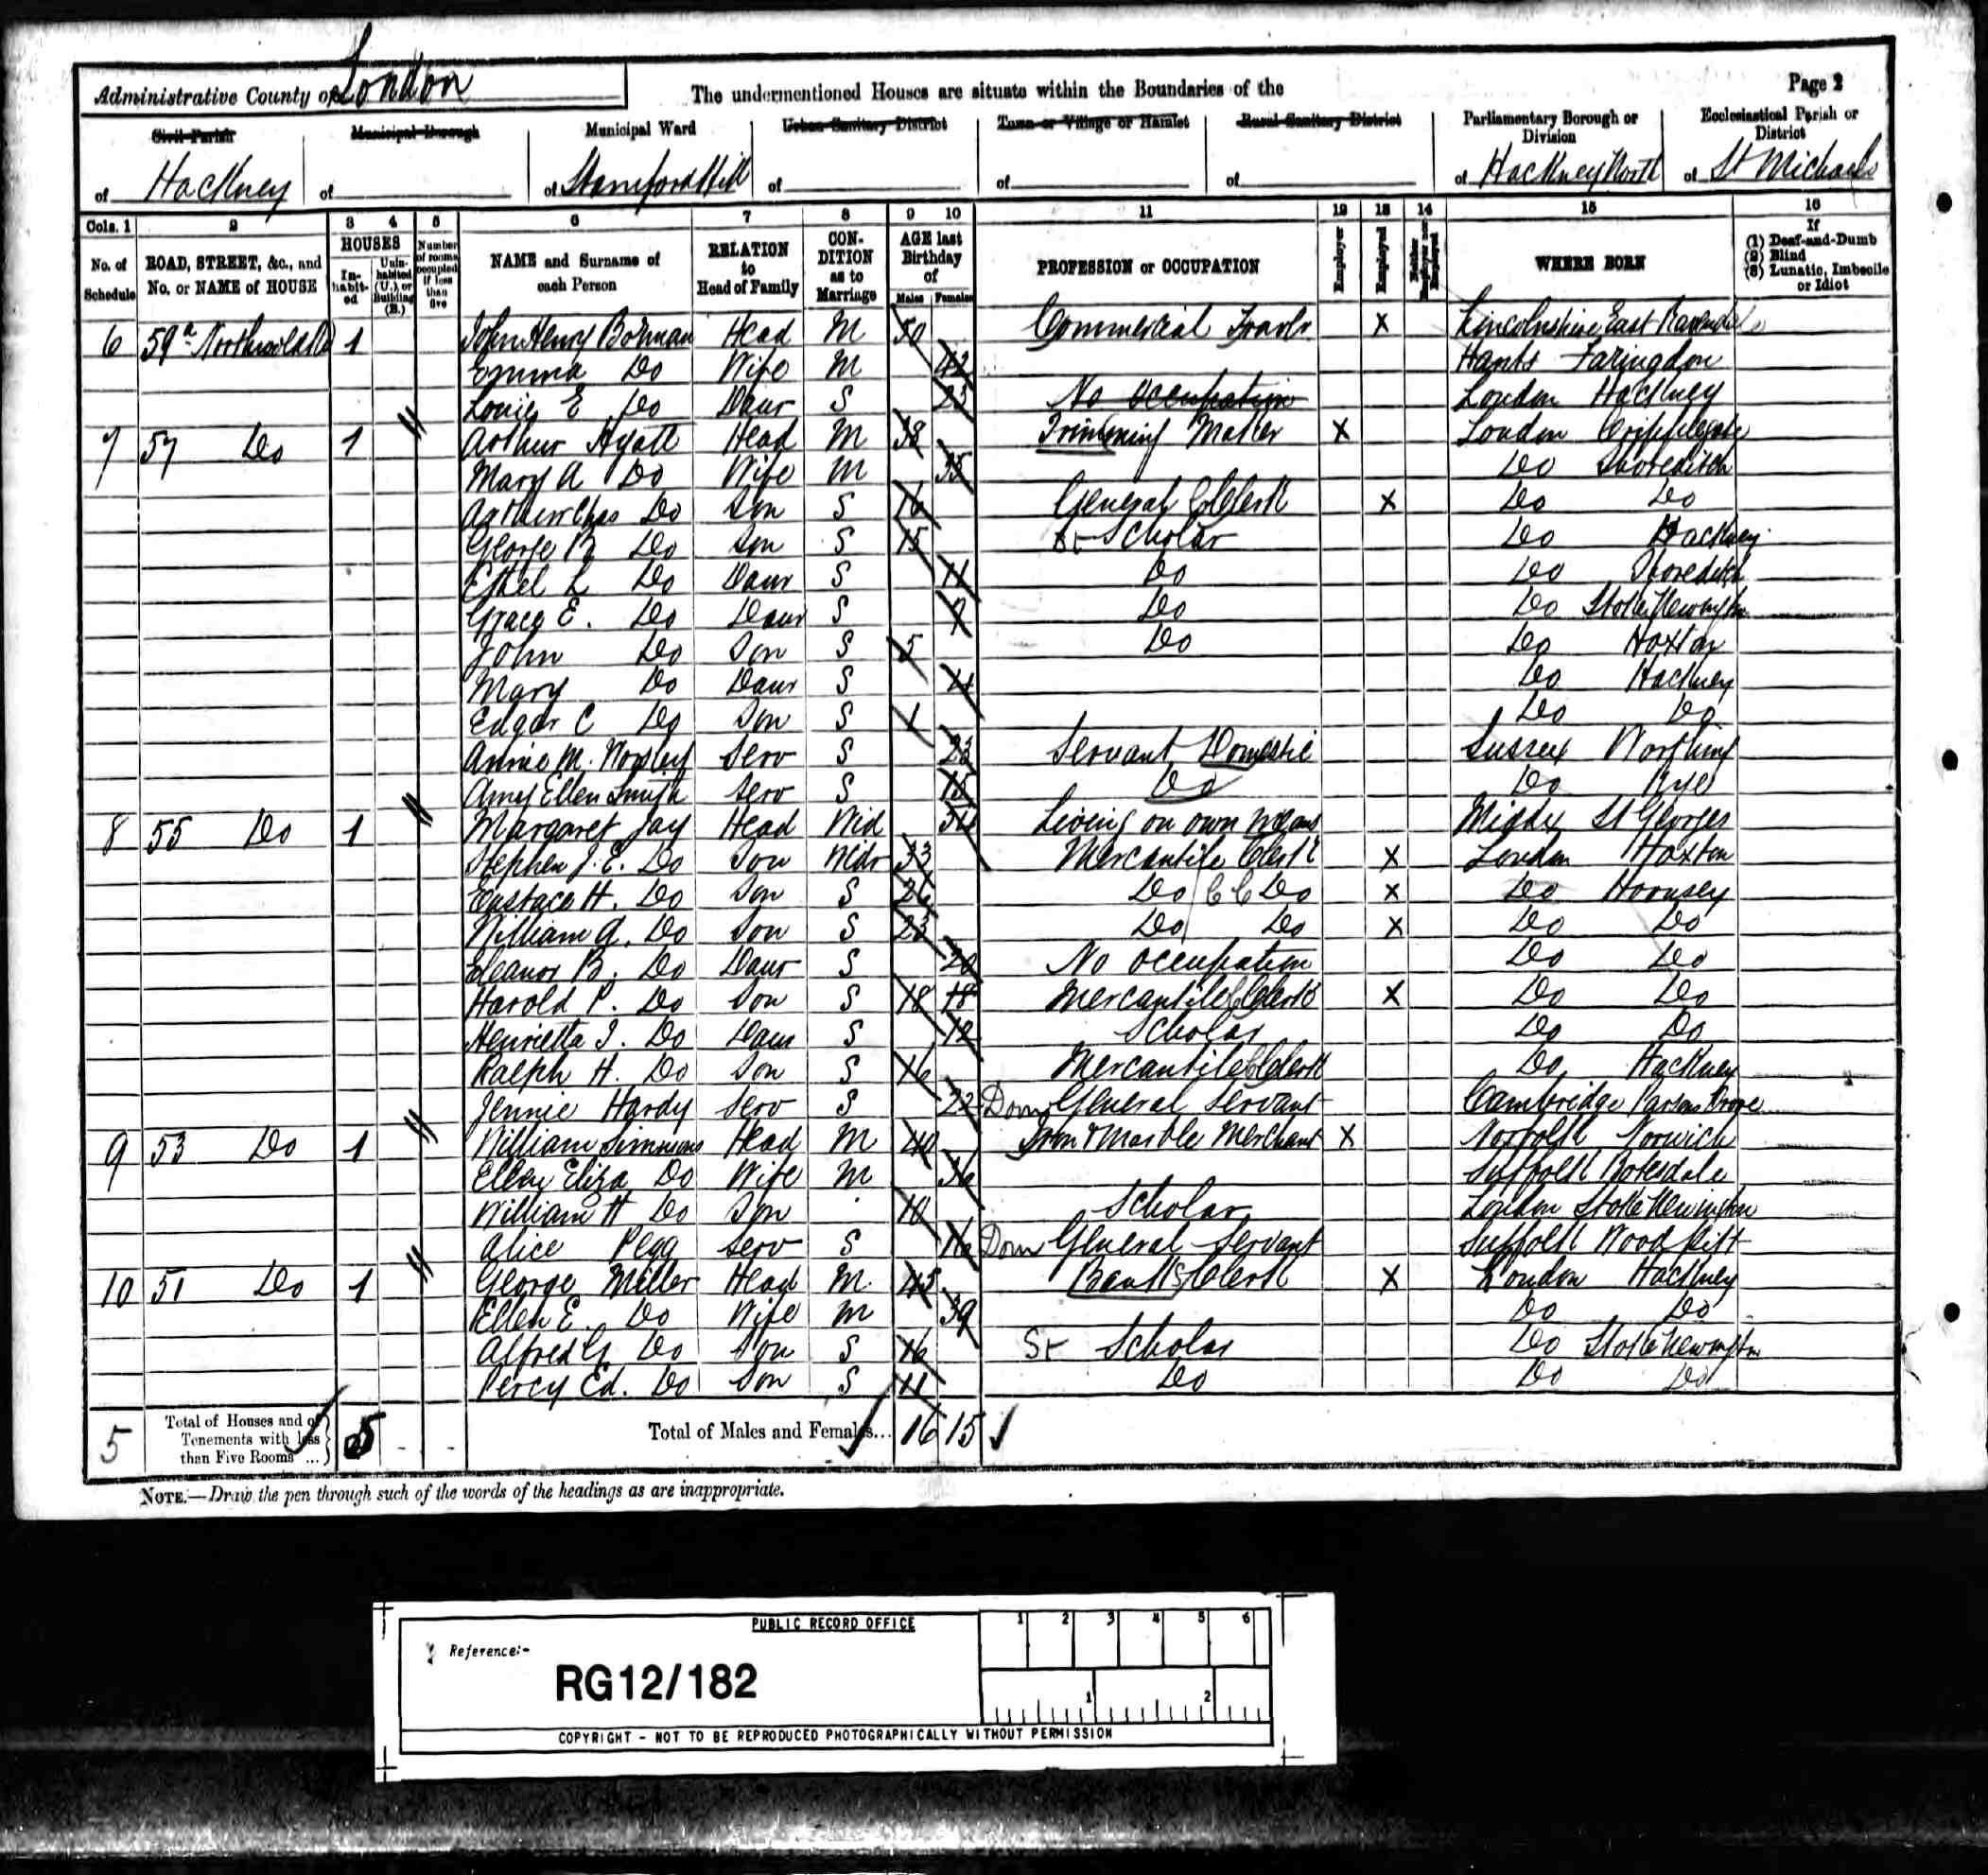 Administrative County of London
The undermentioned Houses are situate within the Boundaries of the
Page 2
Civil Parish of Hackney
Municipal Borough of
Municipal Ward of Stamford Hill
Urban Sanitary District of
Town or Village or Hamlet of
Rural Sanitary District of
Parliamentary Borough or Division of Hackney North
Ecclesiastical Parish or District of St Michaels
Cols. 1 2 3 4 5 6 7 8 9 10 11 12 13 14 15 16
No. of Schedule
ROAD, STREET, &c., and No. or NAME of HOUSE
HOUSES
In-habit-ed
Unin-habited (U.), or Building (B.)
Number of rooms occupied if less than five
NAME and Surname of each Person
RELATION to Head of Family
CON-DITION as to Marriage
AGE last Birthday of
Males Females
PROFESSION or OCCUPATION
Employer
Employed
Neither Employer nor Employed
WHERE BORN
If (1) Deaf-and-Dumb (2) Blind (3) Lunatic, Imbecile or Idiot
6 59a Northwold Rd 1 John Henry Head M 50 Commercial Travlr X Lincolnshire East
Emma Do Wife M 42 Hants Faringdon
Louie E Do Daur S 23 No occupation London Hackney
7 57 Do 1 Arthur Hyatt Head M 38 Trimming Maker X London Cripplegate
Mary A Do Wife M 35 Do Shoreditch
Arthur Chas Do Son S 16 General Clerk X Do Do
George R Do Son S 15 St Scholar Do Hackney
Ethel L Do Daur S 11 Do Do Shoreditch
Grace E. Do Daur S Do Do Stoke Newington
John Do Son S 5 Do Do Hoxton
Mary Do Daur S 4 Do Hackney
Edgar C Do Son S 1 Do Do
Annie M. Serv S 23 Servant Domestic Sussex Worthing
Amy Ellen Smith Serv S Do Do Rye
8 55 Do 1 Margaret Jay Head Wid Living on own means Middx St Georges
Stephen J. E. Do Son Widr 33 Mercantile Clerk X London Hoxton
Eustace H. Do Son S Do C C Do X Do Hornsey
William A. Do Son S 23 Do Do X Do Do
Eleanor B. Do Daur S 20 No occupation Do Do
Harold P. Do Son S 18 18 Mercantile Clerk X Do Do
Henrietta I. Do Daur S 12 Scholar Do Do
Ralph H. Do Son S 16 Mercantile Clerk Do Hackney
Jennie Hardy Serv S 22 Dom General Servant Cambridge Parsons Drove
9 53 Do 1 William Simmons Head M 40 Iron & Marble Merchant X Norfolk Norwich
Ellen Eliza Do Wife M 36 Suffolk Botesdale
William H Do Son 10 Scholar London Stoke Newington
Alice Pegg Serv S 16 Dom General Servant Suffolk Wood Pitt
10 51 Do 1 George Miller Head M. 45 Banks Clerk X London Hackney
Ellen E. Do Wife M 39 Do Do
Alfred G Do Son S 16 St Scholar Do Stoke Newington
Percy Ed. Do Son S 11 Do Do Do
5 Total of Houses and of Tenements with less than Five Rooms ... 5 - -
Total of Males and Females... 16 15
NOTE.—Draw the pen through such of the words of the headings as are inappropriate.
PUBLIC RECORD OFFICE
1 2 3 4 5 6
Reference:-
RG12/182
1 2
COPYRIGHT - NOT TO BE REPRODUCED PHOTOGRAPHICALLY WITHOUT PERMISSION